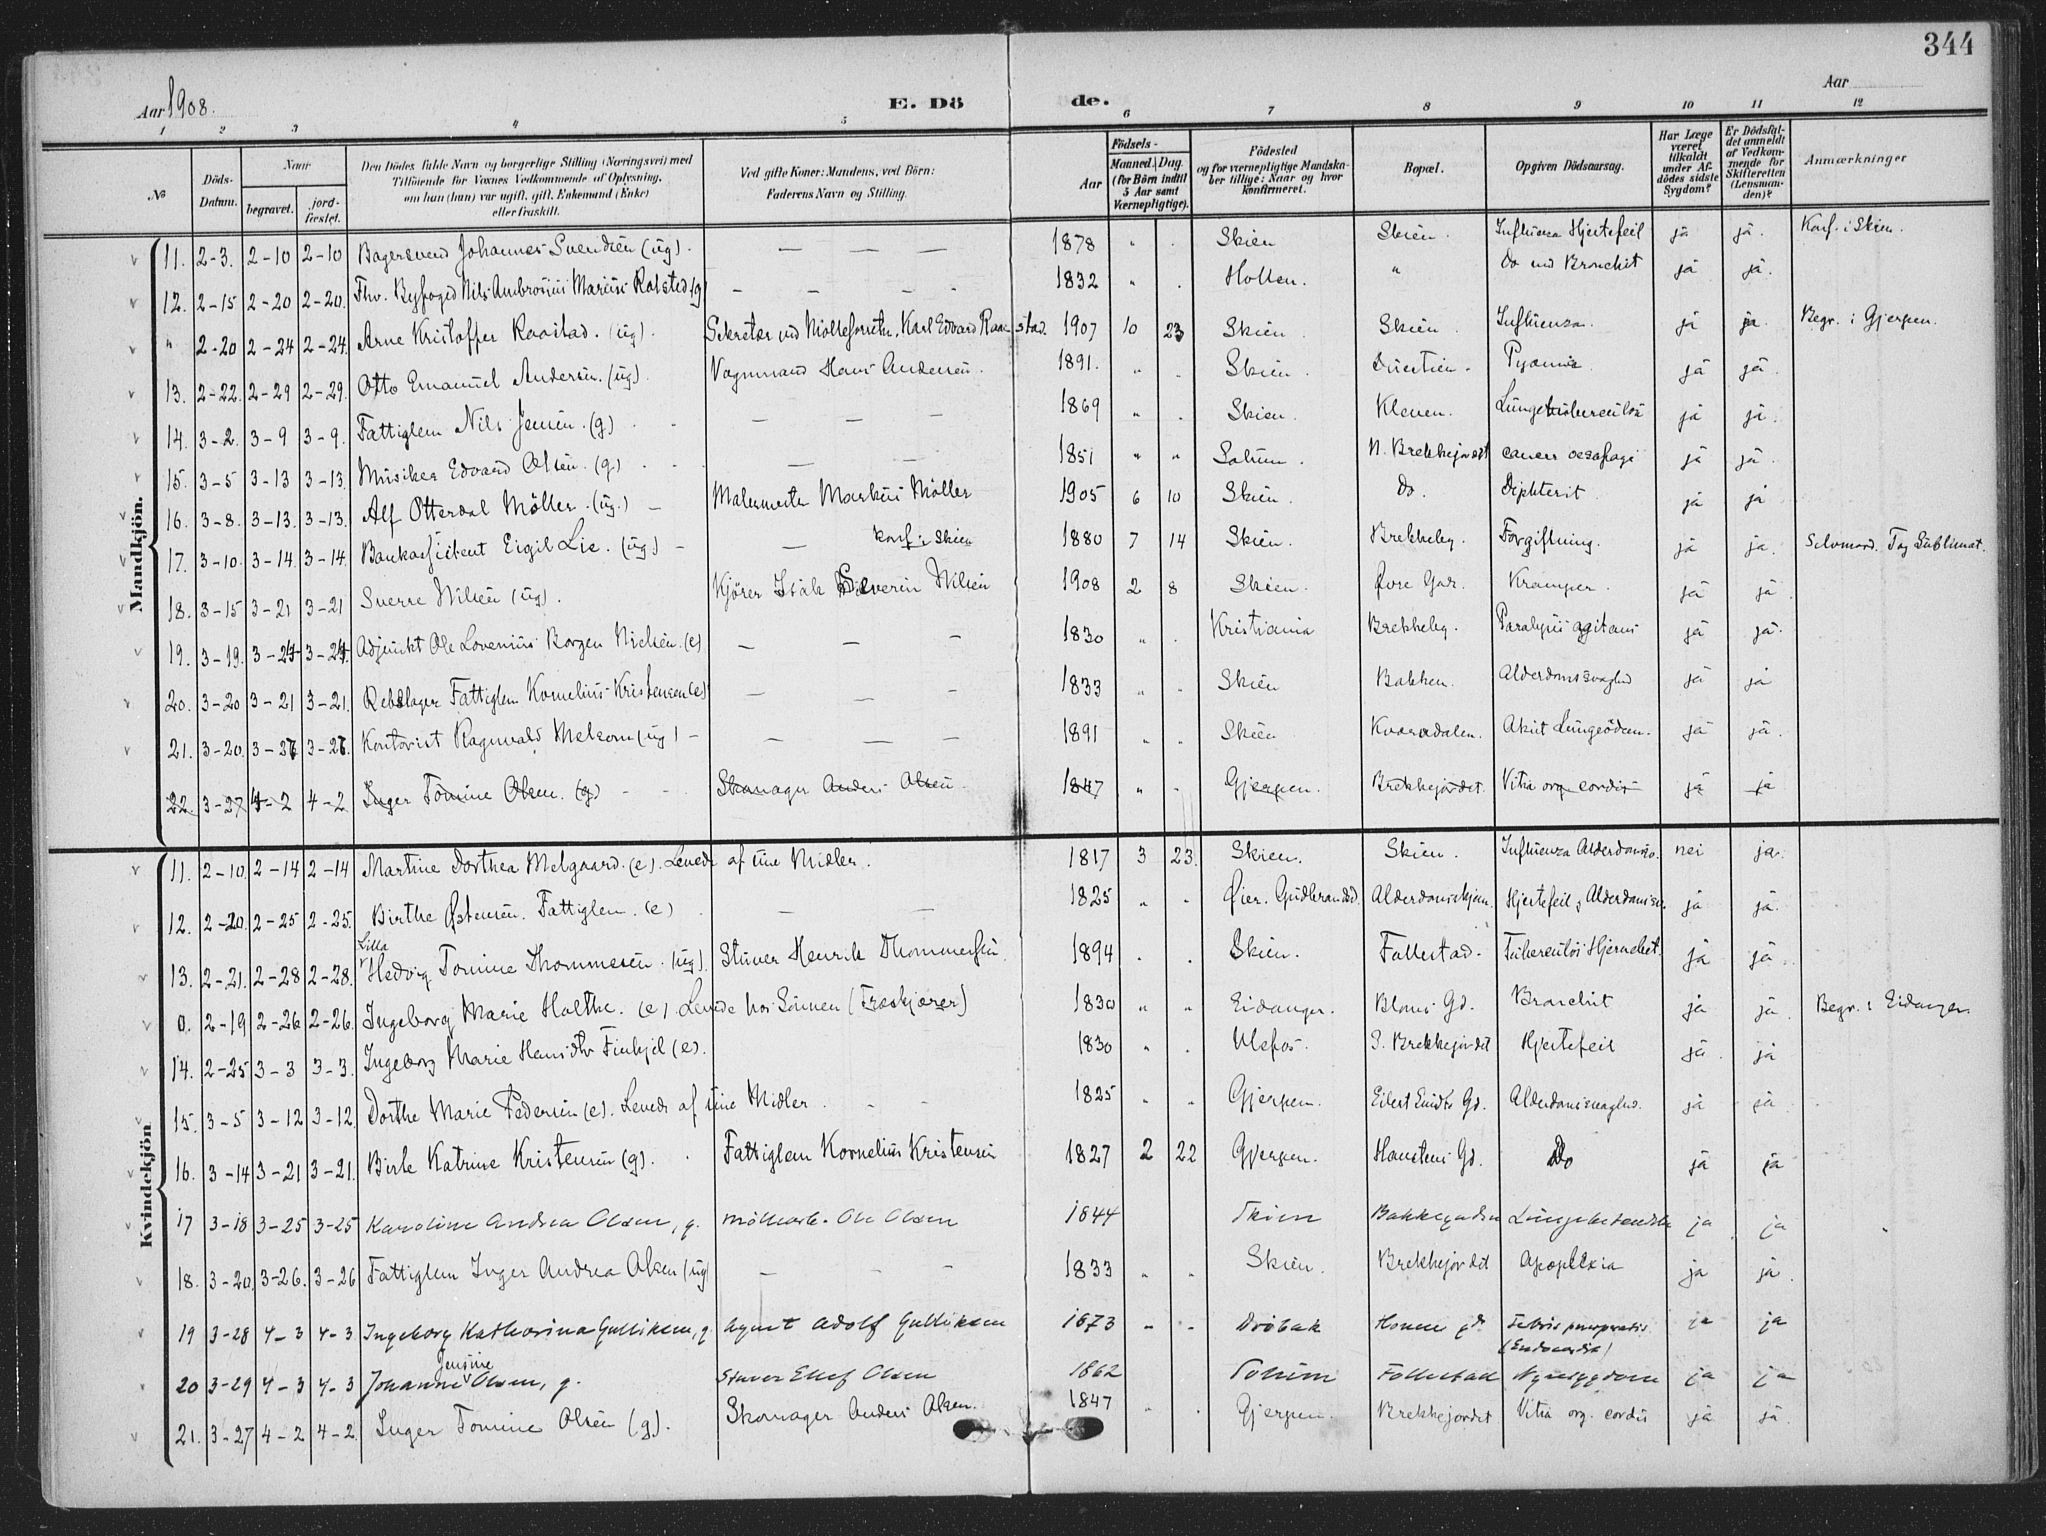 344
Aar 1908.
E. Döde.
Aar
1 2 3 4 5 6 7 8 9 10 11 12
No
Döds-Datum.
Naar
begravet.
jord-fæstet.
Den Dödes fulde Navn og borgerlige Stilling (Næringsvei) med
Tilföiende for Voxnes Vedkommende af Oplysning,
om han (hun) var ugift, gift, Enkemand (Enke)
eller fraskilt.
Ved gifte Koner: Mandens, ved Börn:
Faderens Navn og Stilling.
Födsels-
Aar
Maaned. Dag.
(for Börn indtil
5 Aar samt
Værnepligtige).
Födested
og for værnepligtige Mandska-
ber tillige: Naar og hvor
konfirmeret.
Bopæl.
Opgiven Dödsaarsag.
Har Læge
været
tilkaldt
under Af-
dödes sidste
Sygdom?
Er Dödsfal-
det anmeldt
af Vedkom-
mende for
Skifteretten
(Lensman-
den)?
Anmærkninger
Mandkjön.
11. 2-3. 2-10 2-10 Bagersvend Johannes Svendsen (ug). — — — 1878 " . Skien Skien. Influenza Hjertefeil ja ja. Konf. i Skien.
12. 2-15 2-20 2-20. Fhv. Byfoged Nils Ambrosius Marius Ralsted (g) — — — 1832 " . Hollen. " Do med Bronchit ja ja.
" 2-20 2-24 2-24. Arne Kristoffer Raastad. (ug). Sekretær ved Karl Edvard Raastad. 1907 10 23 Skien. Skien. Influenza. ja ja. Begr. i Gjerpen.
13. 2-22. 2-29 2-29. Otto Emanuel Andersen. (ug). Vognmand Hans Andersen. 1891. " . Skien. Duestien. Pyæmie ja ja.
14. 3-2. 3-9 3-9. Fattiglem Nils Jensen. (g) — — — 1869 " . Skien. Kleven. Lungetuberculos ja ja.
15. 3-5 3-13 3-13. Musiker Edvard Olsen. (g) — — 1851 " " Solum. N. Brekkejordet cancer oesofagi ja ja.
16. 3-8. 3-13. 3-13. Alf Otterdal Möller. (ug.) — Malermester Markus Möller 1905 6 10 Skien. Do. Difterit. ja ja
17. 3-10. 3-14. 3-14. Bankassistent Eigil Lie. (ug.) — — Konf. i Skien 1880 7 14 Skien. Brekkeby. Forgiftning. ja ja. Selvmord. Tog Sublimat.
18. 3-15 3-21 3-21 Sverre Nilsen (ug). Kjörer Isak Severin Nilsen 1908 2 8 Skien. Øvre Gd. Kramper. ja ja.
19. 3-19. 3-24 3-24. Adjunkt Ole Lovenius Borgen Nielsen. (e) — — — 1830 " . Kristiania Brekkeby. Paralysis agitans ja ja.
20. 3-20 3-21 3-21. Rebslager Fattiglem Kornelius Kristensen (e) — — — 1833 " " Skien Bakken. Alderdomssvaghed ja ja
21. 3-20. 3-26 3-26. Kontorist Ragnvald Melsom (ug) — — — — 1891 " " Skien Kværndalen. Akut Lungeödem. ja ja.
22. 3-27 4-2 4-2 Inger Tomine Olsen. (g) — — Skomager Anders Olsen. 1847 " . Gjerpen. Brekkejordet. Vitia org. cordis ja ja
Kvindekjön
11. 2-10. 2-14 2-14 Martine Dorthea Melgaard. (e). Levede af sine Midler. 1817 3 23. Skien. Skien. Influenza Alderdomsv. nei ja.
12. 2-20. 2-25 2-25. Birthe Østensen. Fattiglem. (e) — — 1825 " . Øier. Gudbrandsd. Alderdomshjem. Hjertefeil, Alderdomsv. ja ja.
Lilla
13. 2-21. 2-28 2-28. Hedvig Tomine Thommesen. (ug). Stuver Henrik Thommesen. 1894 . . Skien. Follestad. Tuberculös Hjernebet. ja ja.
0. 2-19 2-26 2-26. Ingeborg Marie Holthe. (e). Levede hos Sönnen (Træskjærer) 1830 " " Eidanger. Bloms Gd. Bronchit ja ja. Begr. i Eidanger.
14. 2-25 3-3 3-3. Ingeborg Marie Hansdtr Finkjel (e). 1830 " . Ulefos. S. Brekkejordet Hjertefeil ja. ja
15. 3-5 3-12 3-12. Dorthe Marie Pedersen (e). Levede af sine Midler. — — 1825 " " Gjerpen. Eilert Sundts Gd. Alderdomssvaghed. ja ja.
16. 3-14 3-21 3-21. Birte Katrine Kristensen (g). Fattiglem Kornelius Kristensen 1827 2 22 Gjerpen. Hanstens Gd. Do ja ja
17 3-18 3-25 3-25 Karoline Andrea Olsen, g. Möllearb. Ole Olsen 1844 Skien Bakkegaden Lungebetændelse ja ja
18. 3-20. 3-26. 3-26 Fattiglem Inger Andrea Olsen (ug) — — — 1833 " " Skien. Brekkejordet Apoplexia ja ja.
19 3-28 4-3 4-3 Ingeborg Katharina Gulliksen, g. Agent Adolf Gulliksen 1873 " " Dröbak gd. Febris puerperalis (Endocardit) ja ja
Jensine
20 3-29 4-3 4-3 Johanne Olsen, g. Stuver Ellef Olsen 1862 Solum Follestad Nyresygdom ja ja
21. 3-27 4-2 4-2. Inger Tomine Olsen (g). Skomager Anders Olsen. 1847 " . Gjerpen. Brekkejordet. Vitia org. cordis ja ja.